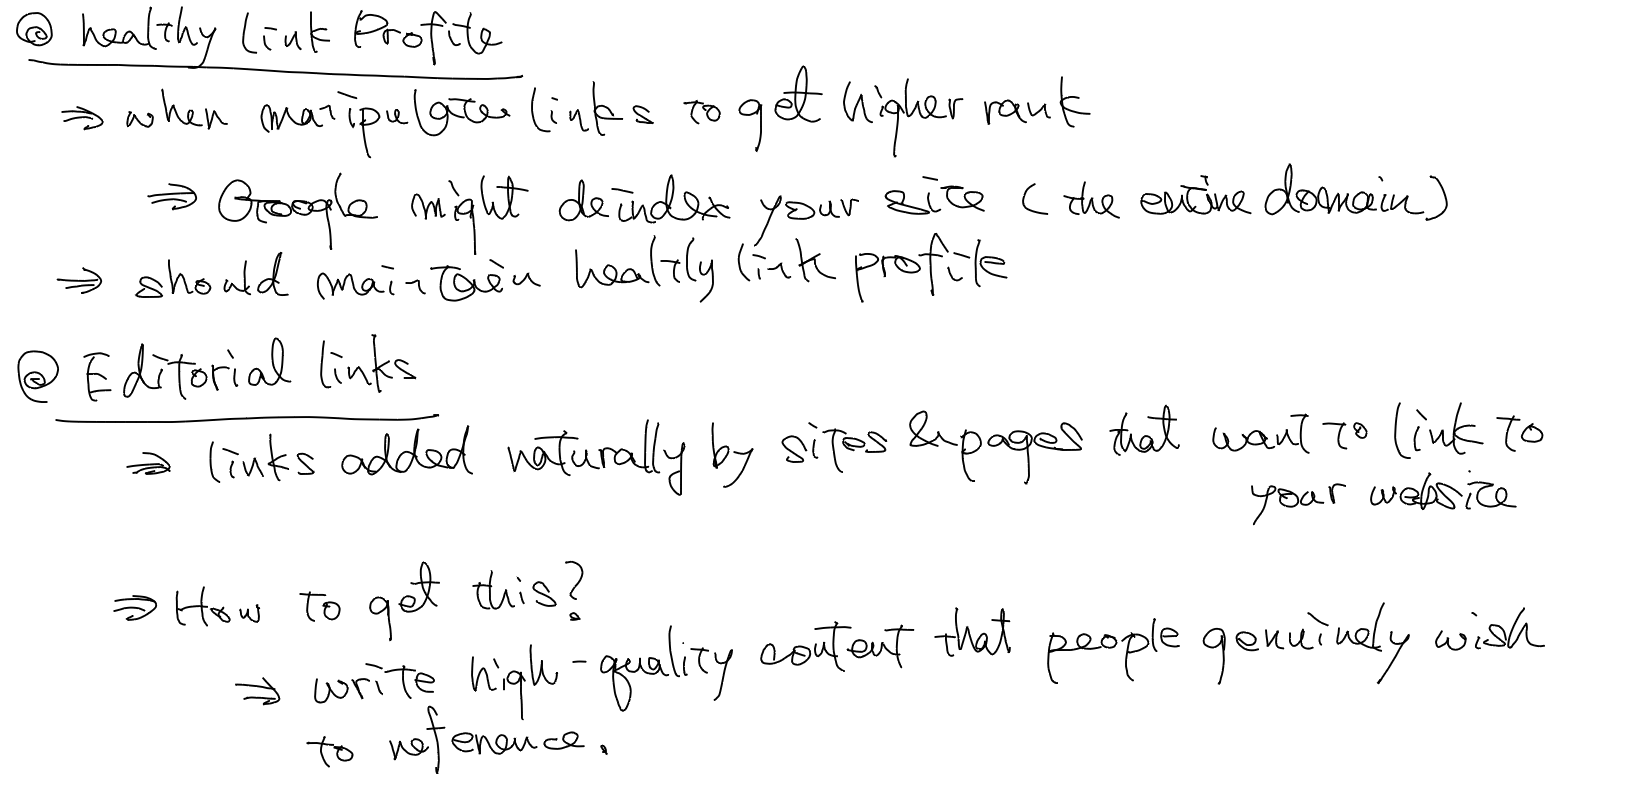 @ healthy link Profile
⇒ when manipulate links to get higher rank
⇒ Google might deindex your site (the entire domain)
⇒ should maintain healthy link profile
@ Editorial links
⇒ links added naturally by sites & pages that want to link to
your website
⇒ How to get this?
⇒ write high-quality content that people genuinely wish
to reference.